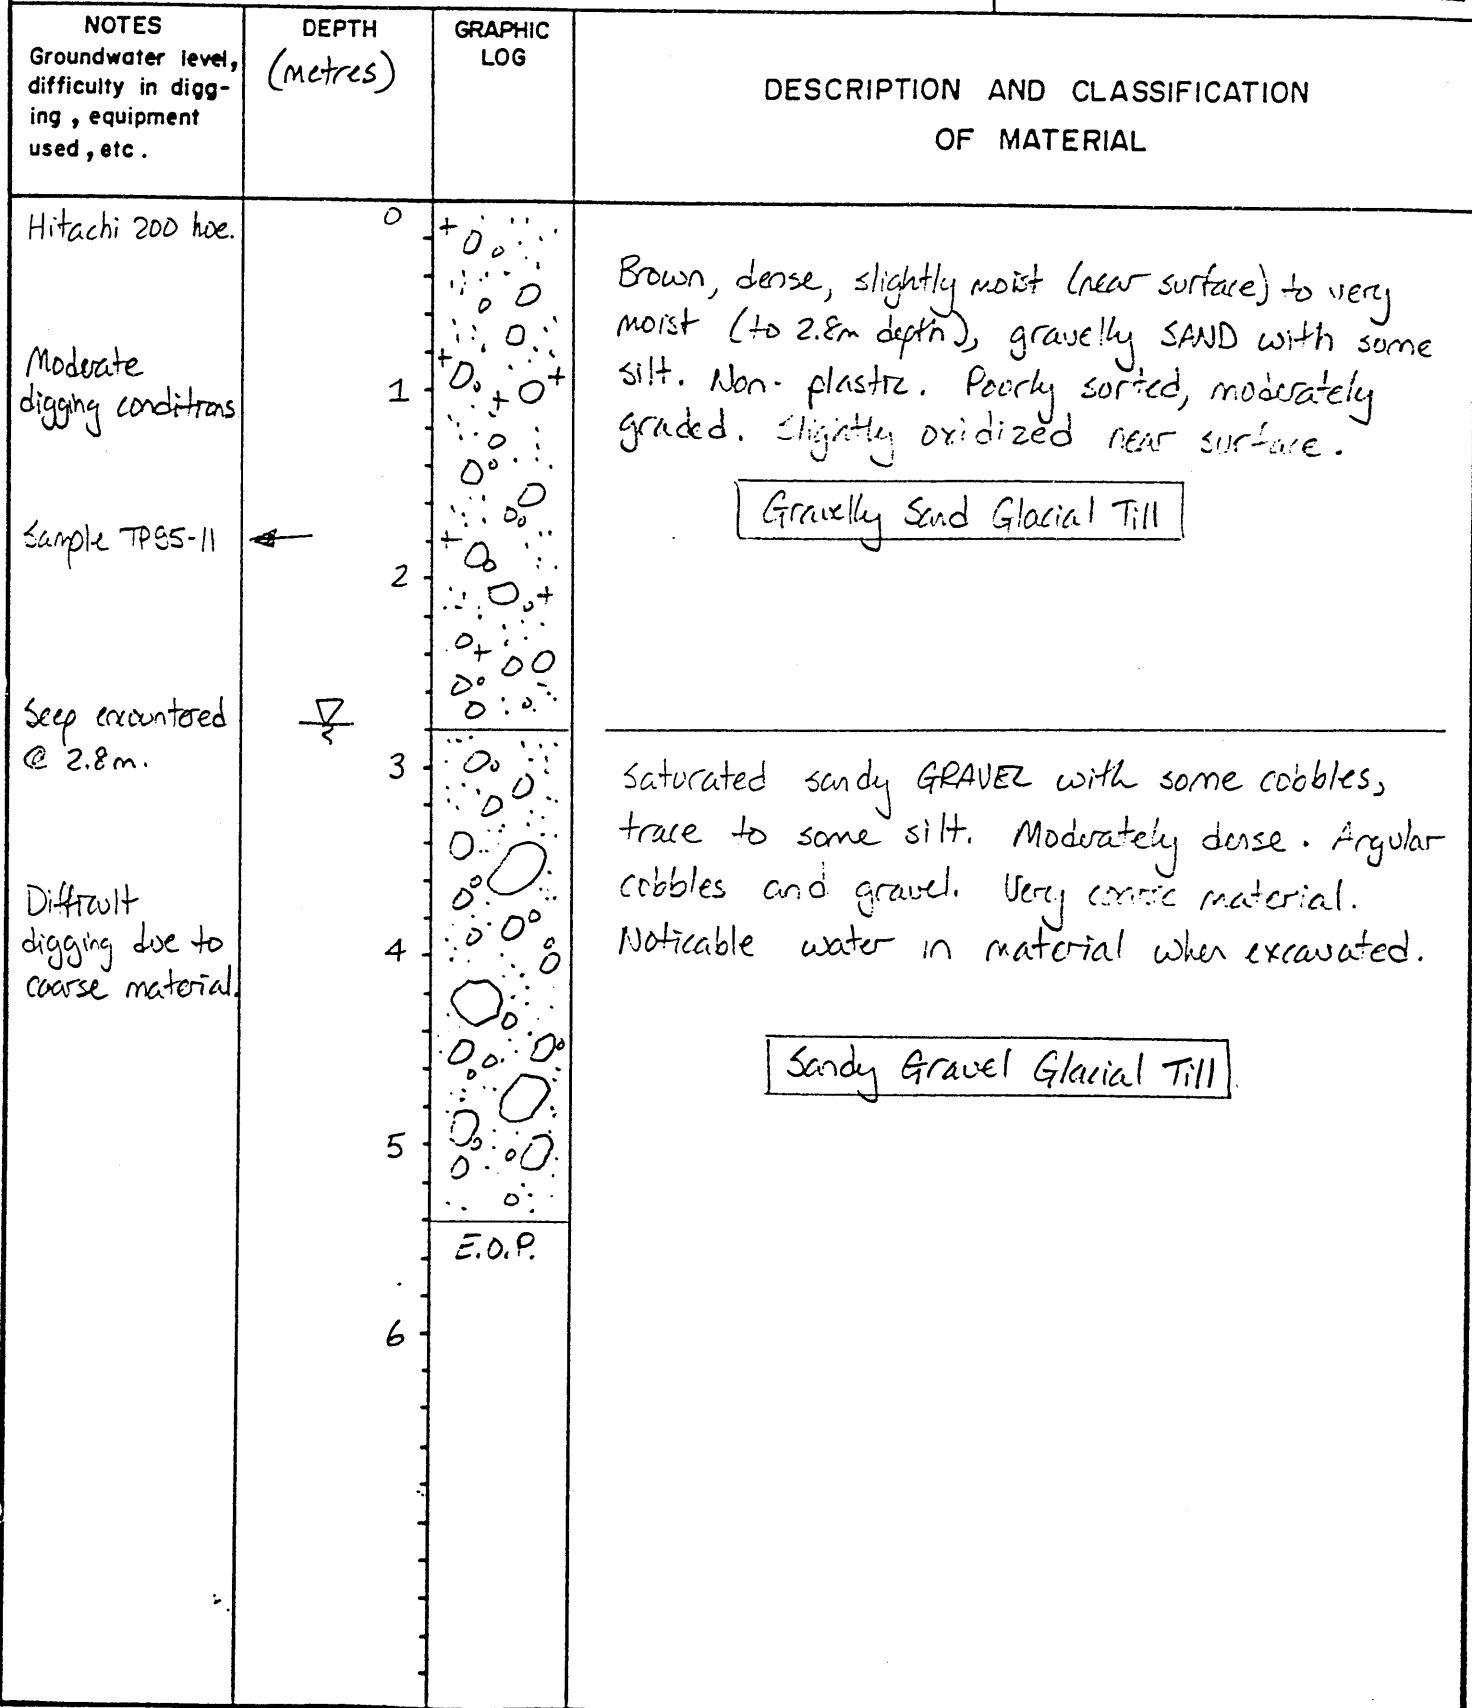 NOTES
Groundwater level,
difficulty in digg-
ing , equipment
used , etc .
DEPTH
(metres)
GRAPHIC
LOG
DESCRIPTION AND CLASSIFICATION
OF MATERIAL
Hitachi 200 hoe.
Moderate
digging conditions
Sample TP85-11
Seep encountered
@ 2.8m.
Difficult
digging due to
coarse material.
0
1
2
3
4
5
6
E.O.P.
Brown, dense, slightly moist (near surface) to very
moist (to 2.8m depth), gravelly SAND with some
silt. Non-plastic. Poorly sorted, moderately
graded. Slightly oxidized near surface.
Gravelly Sand Glacial Till
Saturated sandy GRAVEL with some cobbles,
trace to some silt. Moderately dense. Angular
cobbles and gravel. Very coarse material.
Noticable water in material when excavated.
Sandy Gravel Glacial Till